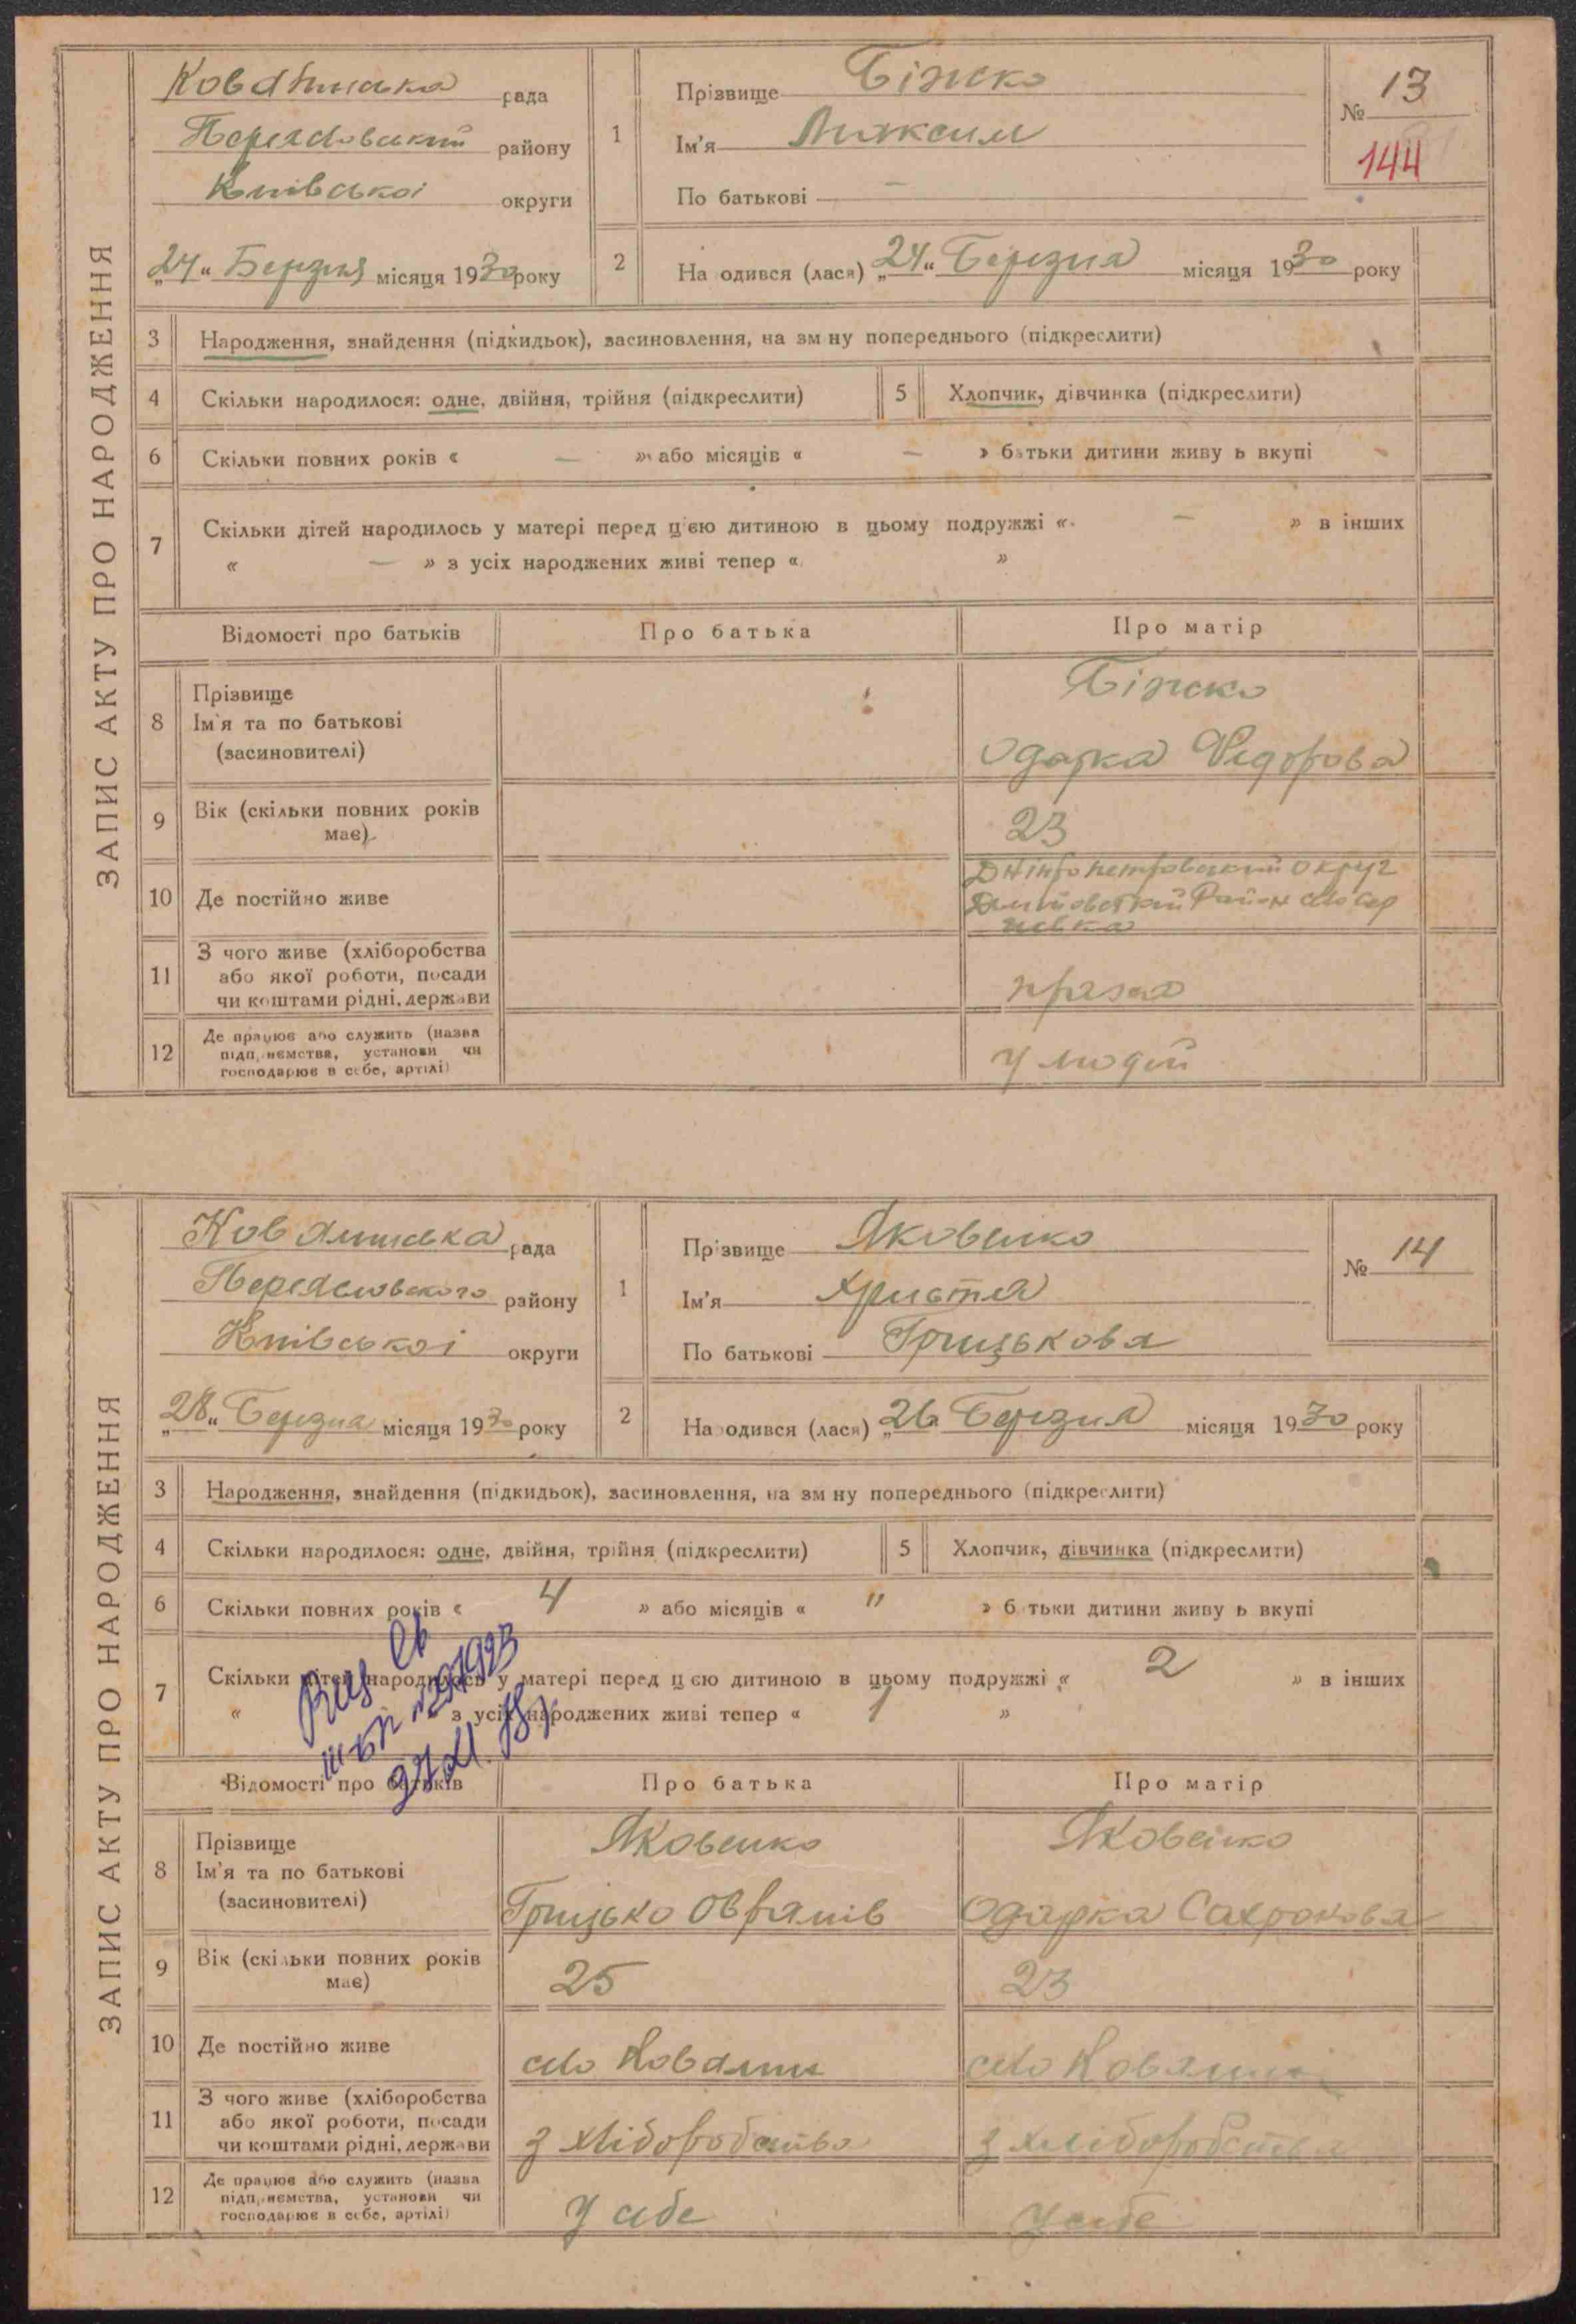 ЗАПИС АКТУ ПРО НАРОДЖЕННЯ
рада
Переяславський району
Київської округи
„24“ Березня місяця 1930 року
1
Прізвище Біжко
Ім'я Максим
По батькові —
№ 13
144
2
На одився (лася) „24“ Березня місяця 1930 року
3 Народження, знайдення (підкидьок), засиновлення, на зм ну попереднього (підкреслити)
4 Скільки народилося: одне, двійня, трійня (підкреслити)
5 Хлопчик, дівчинка (підкреслити)
6 Скільки повних років « — » або місяців « — » батьки дитини живу ь вкупі
7 Скільки дітей народилось у матері перед цією дитиною в цьому подружжі « — » в інших
« — » з усіх народжених живі тепер « »
Відомості про батьків
Про батька
Про матір
8 Прізвище
Ім'я та по батькові
(засиновителі)
Біжко
Одарка Федорова
9 Вік (скільки повних років має)
23
10 Де постійно живе
округ
Район село
11 З чого живе (хліборобства
або якої роботи, посади
чи коштами рідні, держави
12 Де працює або служить (назва
підприємства, установи чи
господарює в себе, артілі)
у людей
ЗАПИС АКТУ ПРО НАРОДЖЕННЯ
рада
Переяславського району
Київської округи
„28“ Березня місяця 1930 року
1
Прізвище Яковенко
Ім'я Христя
По батькові Грицькова
№ 14
2
На одився (лася) „26“ Березня місяця 1930 року
3 Народження, знайдення (підкидьок), засиновлення, на зм ну попереднього (підкреслити)
4 Скільки народилося: одне, двійня, трійня (підкреслити)
5 Хлопчик, дівчинка (підкреслити)
6 Скільки повних років « 4 » або місяців « " » б тьки дитини живу ь вкупі
7 Скільки дітей народилось у матері перед цією дитиною в цьому подружжі « 2 » в інших
« з усіх народжених живі тепер « 1 »
Відомості про батьків
Про батька
Про матір
8 Прізвище
Ім'я та по батькові
(засиновителі)
Яковенко
Грицько
Яковенко
Одарка
9 Вік (скільки повних років має)
25
23
10 Де постійно живе
село
село
11 З чого живе (хліборобства
або якої роботи, посади
чи коштами рідні, держави
з хліборобства
з хліборобства
12 Де працює або служить (назва
підприємства, установи чи
господарює в себе, артілі)
У себе
У себе